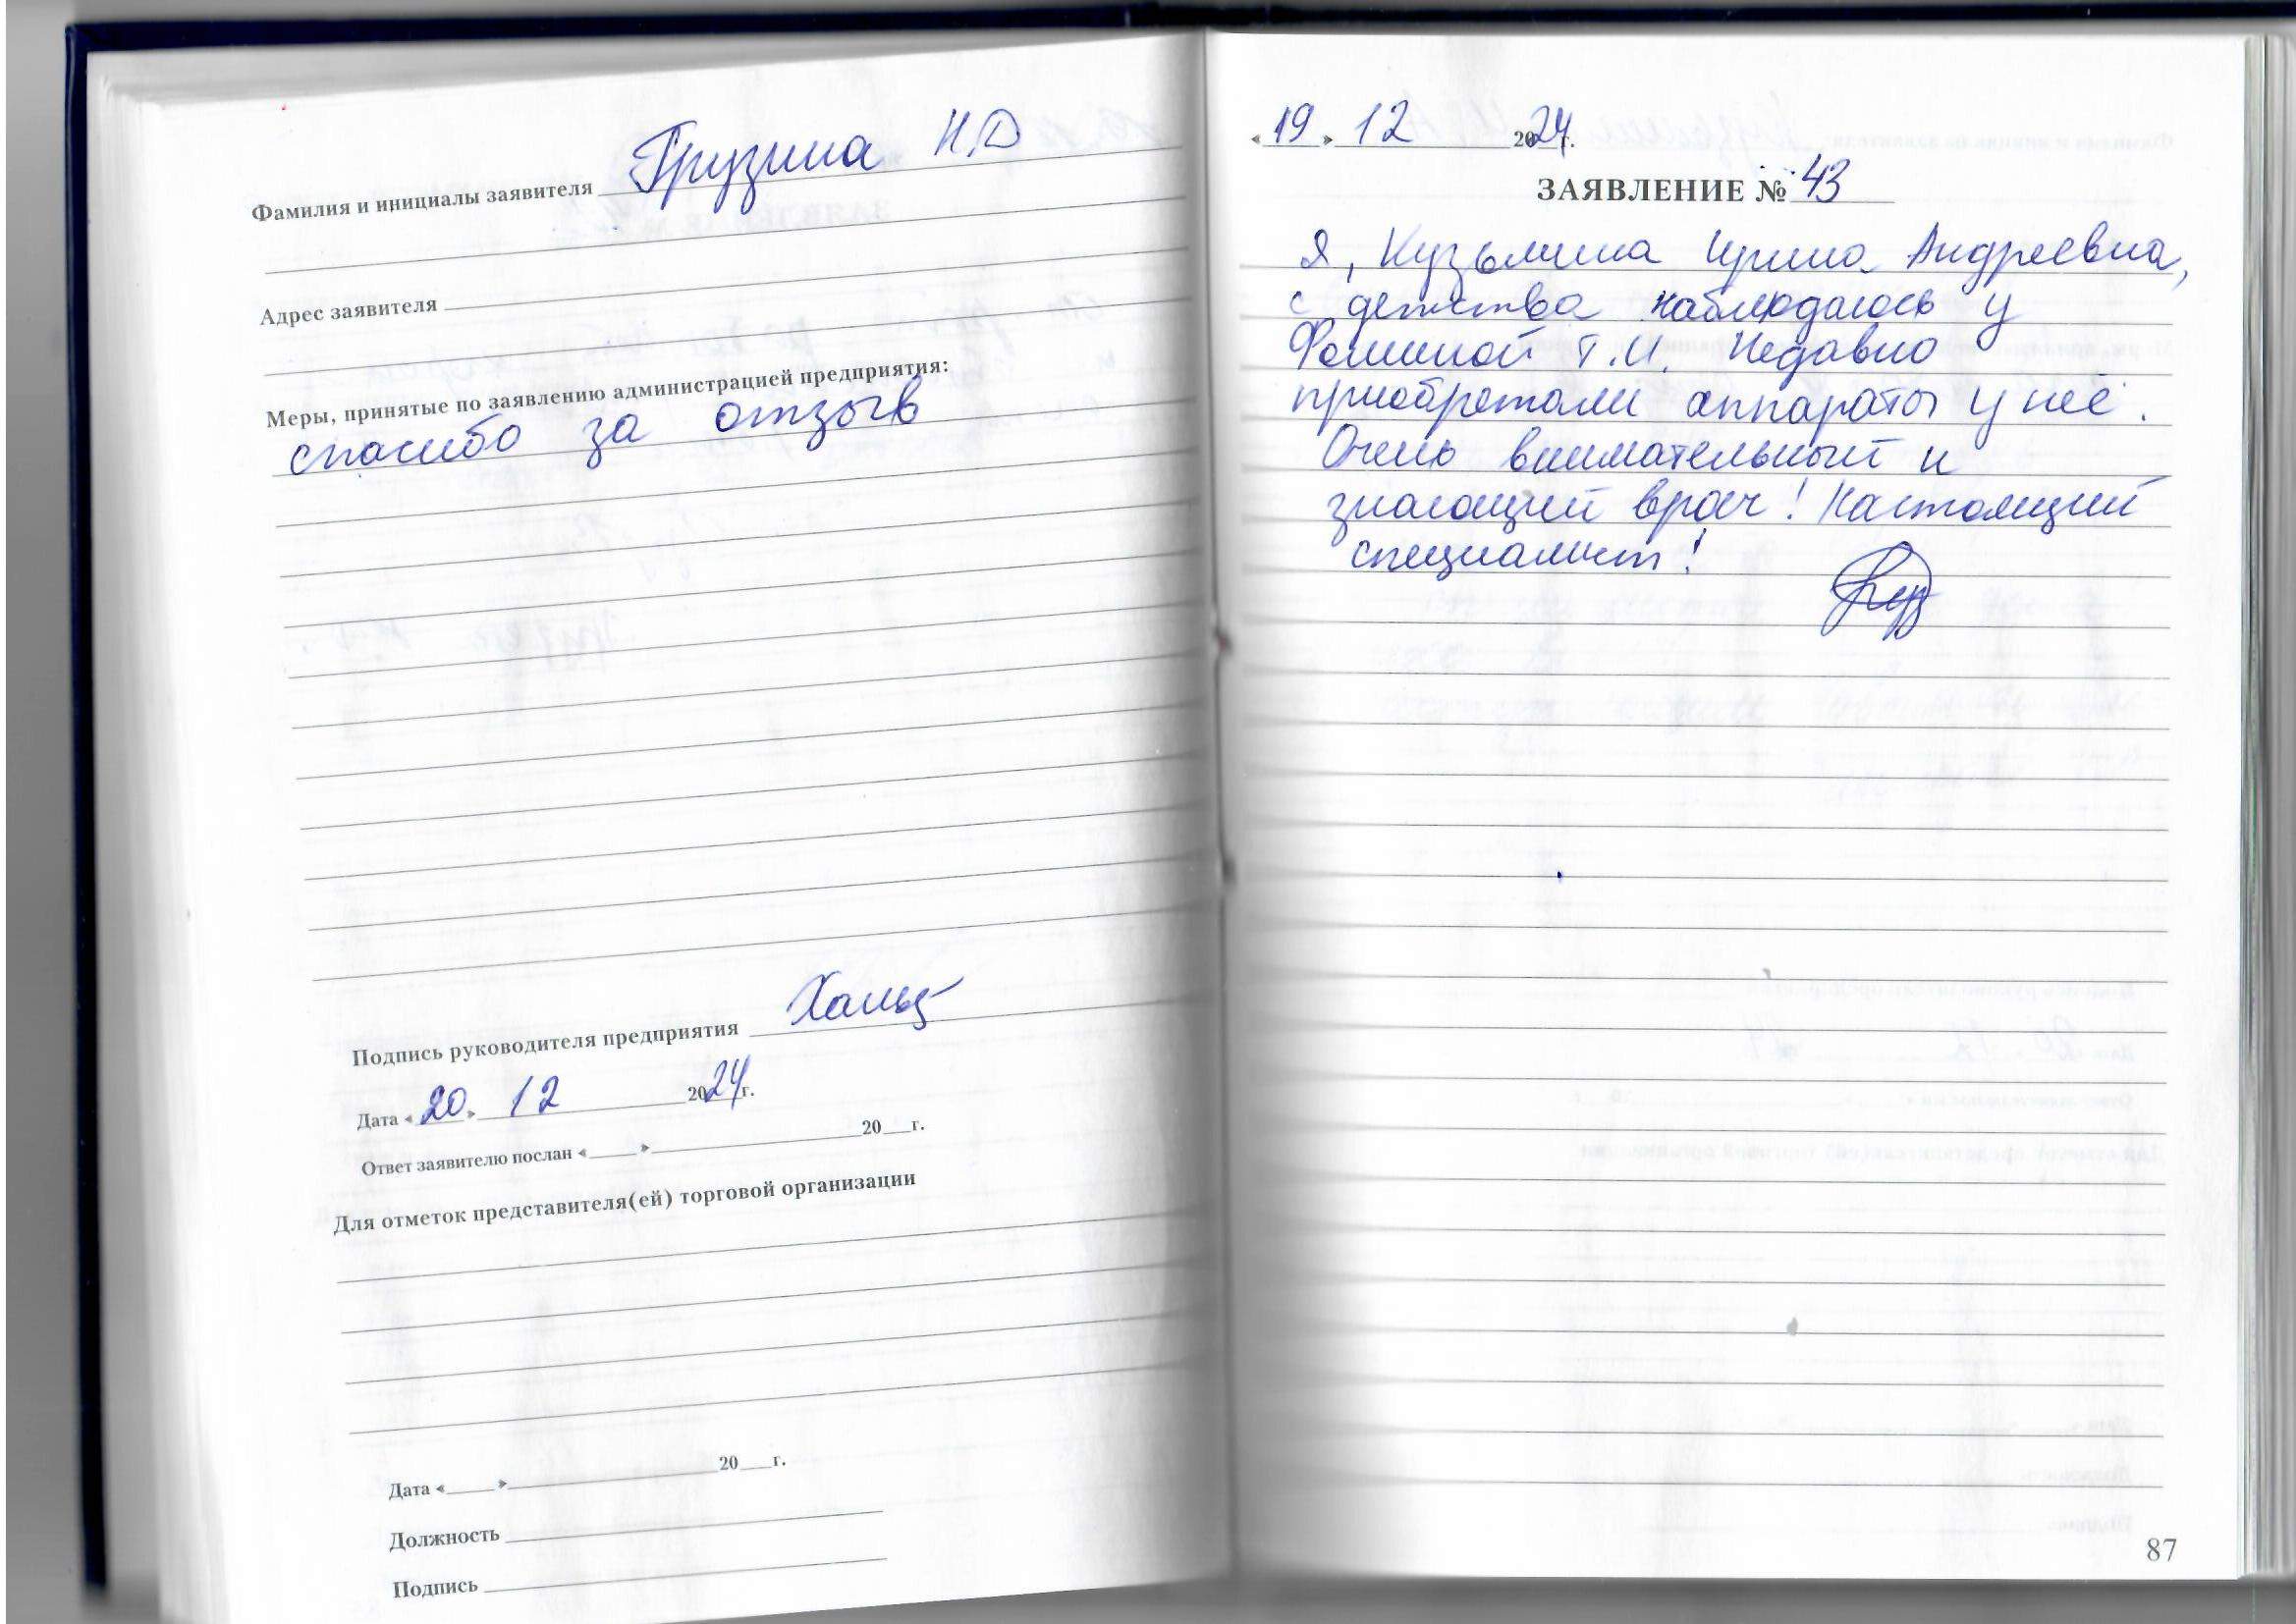 Фамилия и инициалы заявителя Грузина Н.Д
Адрес заявителя
Меры, принятые по заявлению администрацией предприятия:
спасибо за отзыв
Подпись руководителя предприятия
Дата «20» 12 2024г.
Ответ заявителю послан « » 20 г.
Для отметок представителя(ей) торговой организации
Дата « » 20 г.
Должность
Подпись
«19» 12 2024г.
ЗАЯВЛЕНИЕ № 43
Я, Кузьмина Ирина Андреевна,
с детства наблюдаюсь у
Фоминой Т.И. Недавно
приобретали аппараты у неё.
Очень внимательный и
знающий врач! Настоящий
специалист!
87